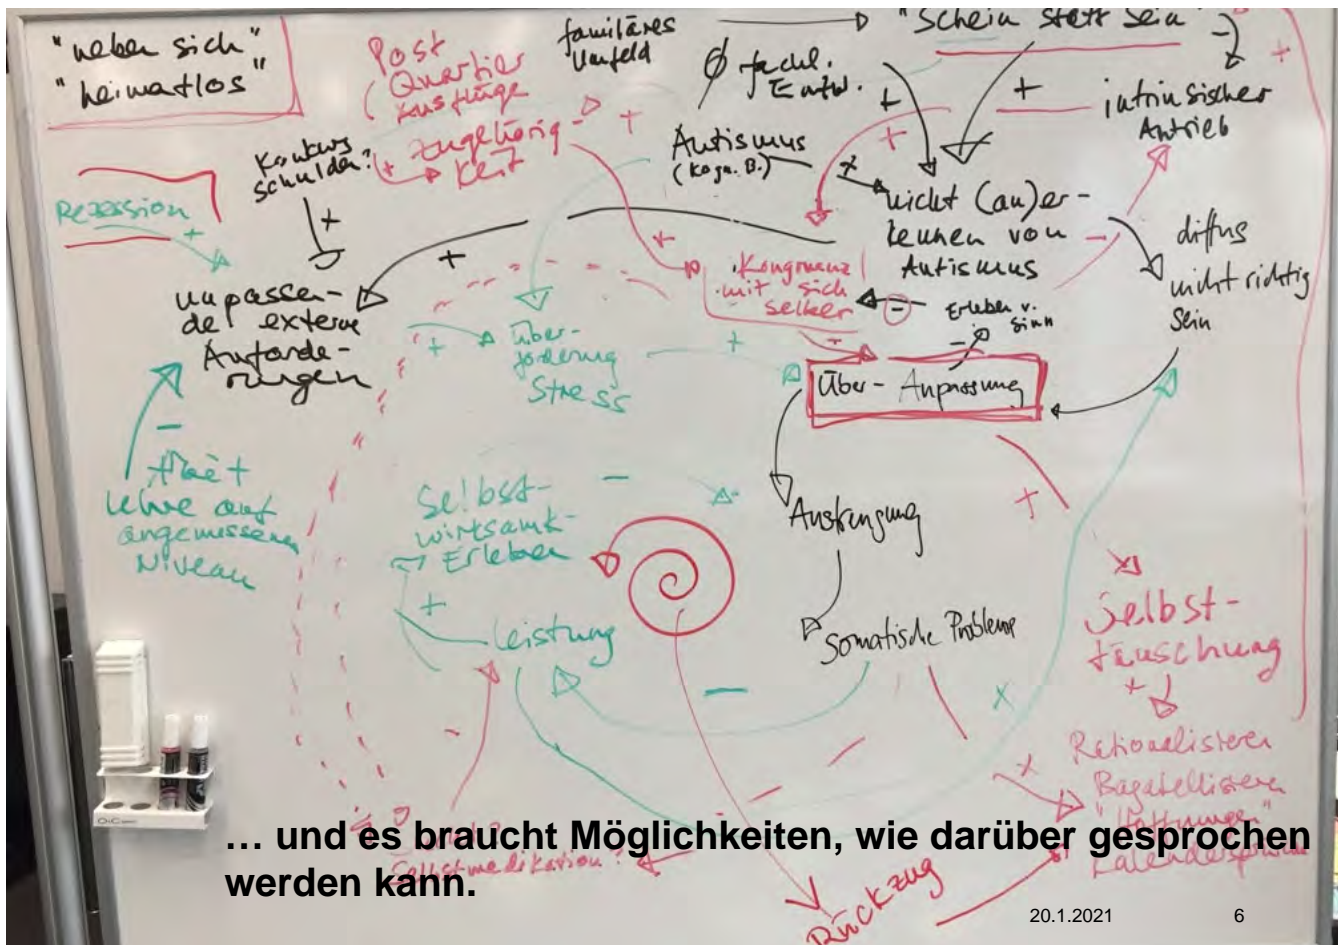 "neben sich"
"heimatlos"
Post
Quartier
Ausflüge
Zugehörig-
keit
familiäres
Umfeld
"Schein statt Sein"
Ø fachl.
Entw.
intrinsischer
Antrieb
Konkurs
schulden?
Autismus
(kogn. B.)
Rezession
nicht (an)er-
kennen von
Autismus
diffus
nicht richtig
Sein
unpassen-
de externe
Anforde-
rungen
Kongruenz
mit sich
selber
Erleben v.
Sinn
Über-
forderung
Stress
Über-Anpassung
Lehre auf
angemessenem
Niveau
Selbst-
wirksamk-
Erleben
Anstrengung
Leistung
Somatische Probleme
Selbst-
täuschung
Rationalisieren
Bagatellisieren
"Hoffnungen"
Kalendersprüche
Selbstmedikation?
Rückzug
… und es braucht Möglichkeiten, wie darüber gesprochen
werden kann.
20.1.2021 6